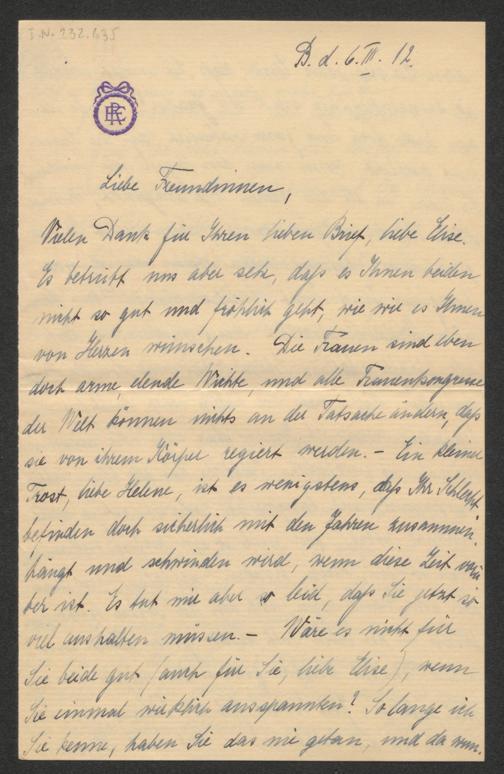 I.N. 232.635
B. d. 6. III. 12.
Liebe Freundinnen,
Vielen Dank für Ihren lieben Brief, liebe Elise.
Es betrübt uns aber sehr, daß es Ihnen beiden
nicht so gut und fröhlich geht, wie wir es Ihnen
von Herzen wünschen. Die Frauen sind eben
doch arme, elende Wichte, und alle Frauenkongresse
der Welt können nichts an der Tatsache ändern, daß
sie von ihrem Körper regiert werden. – Ein kleiner
Trost, liebe Helene, ist es wenigstens, daß Ihr Schlecht-
befinden doch sicherlich mit den Jahren zusammen-
hängt und schwinden wird, wenn diese Zeit vorü-
ber ist. Es tut mir aber so leid, daß Sie jetzt so
viel aushalten müssen. – Wäre es nicht für
Sie beide gut (auch für Sie, liebe Elise), wenn
Sie einmal wirklich ausspannten? So lange ich
Sie kenne, haben Sie das nie getan, und da wun-